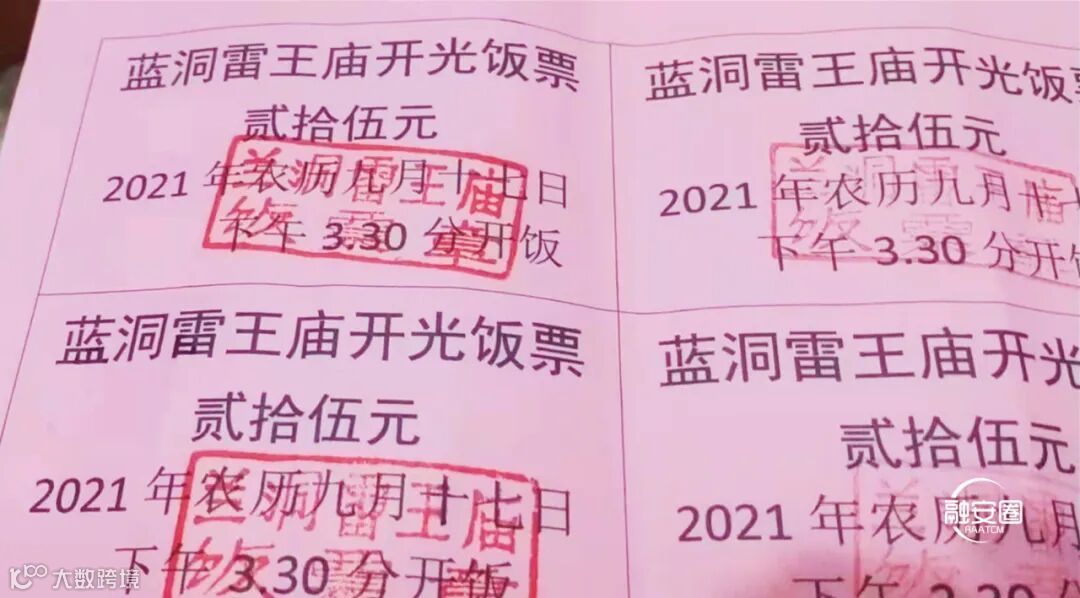 蓝洞雷王庙开光饭票
贰拾伍元
2021 年农历九月十七日
下午 3.30 分开饭
兰洞雷王庙
饭票章
蓝洞雷王庙开光饭票
贰拾伍元
2021 年农历九月十七
下午 3.30 分开饭
兰洞雷王庙
饭票
蓝洞雷王庙开光饭票
贰拾伍元
2021 年农历九月十七日
下午 3.30 分开饭
兰洞雷王庙
饭票章
蓝洞雷王庙开光
贰拾伍元
2021 年农历九月
下午 3.30
融安圈
RAATCM
大数跨境